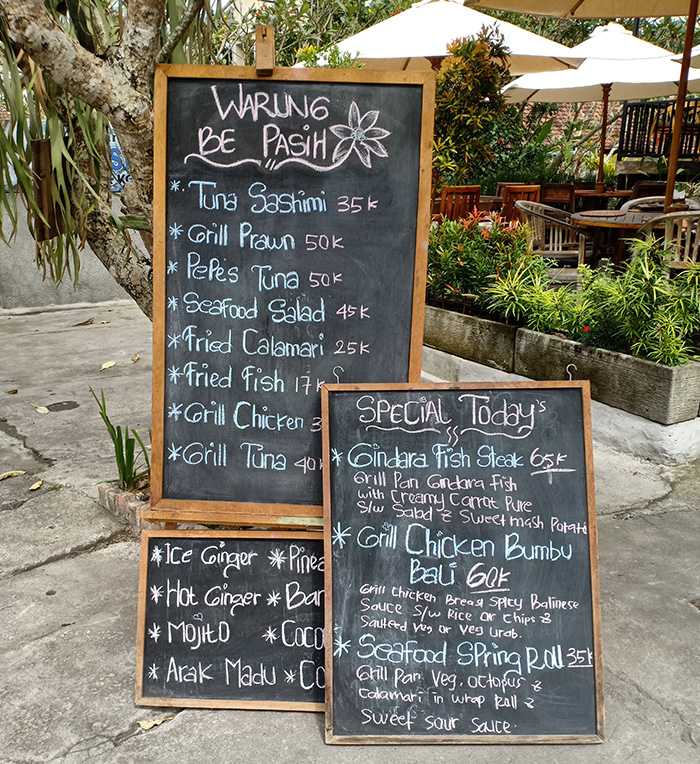 WARUNG
BE PASIH
* Tuna Sashimi 35K
* Grill Prawn 50K
* PePe's Tuna 50K
* Seafood Salad 45K
* Fried Calamari 25K
* Fried Fish 17K
* Grill Chicken
* Grill Tuna
SPECIAL Today's
* Gindara Fish Steak 65K
Grill Pan Gindara Fish
with Creamy Carrot Pure
S/w Salad & Sweet mash Potato
* Grill Chicken Bumbu
Bali 60K
Grill Chicken Breast Spicy Balinese
Sauce S/w Rice or Chips &
Sauteed Veg or Veg Urab.
* Seafood Spring Roll 35K
Grill Pan Veg. Octopus &
Calamari in wrap Roll &
Sweet Sour Sauce.
* Ice Ginger *
* Hot Ginger *
* Mojito *
* Arak Madu *